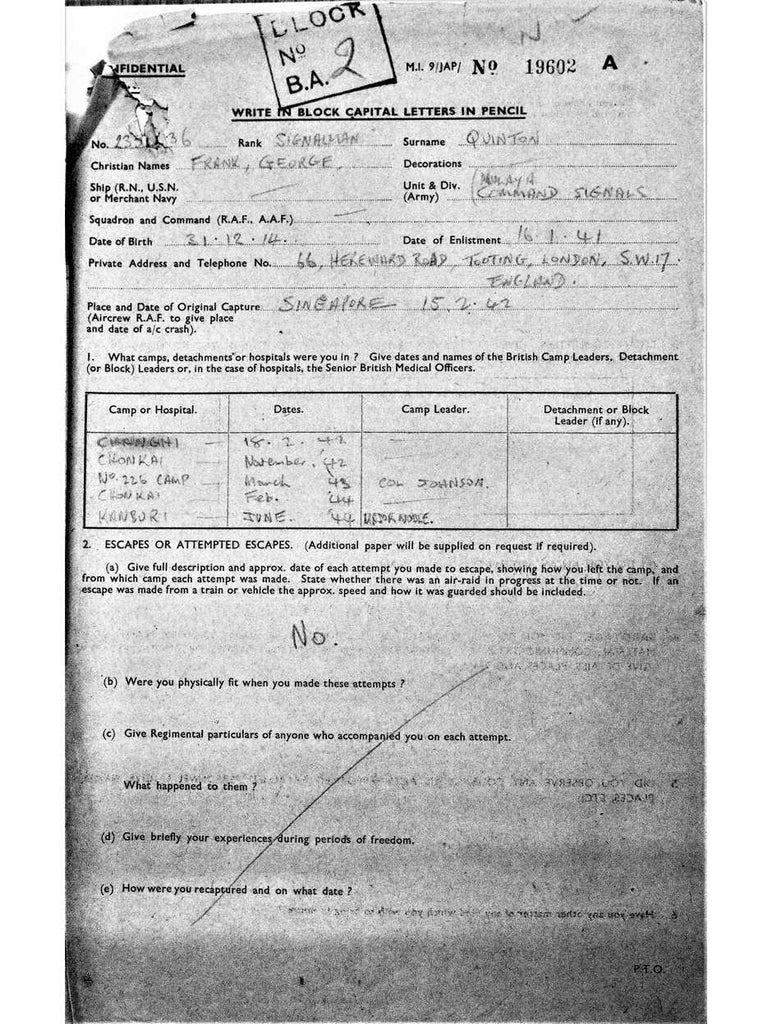 BLOCK
No
B.A. 2
M.I. 9/JAP/ No 19602 A
WRITE IN BLOCK CAPITAL LETTERS IN PENCIL
No. Rank SIGNALMAN Surname QUINTON
Christian Names FRANK, GEORGE, Decorations
Ship (R.N., U.S.N. or Merchant Navy Unit & Div. (Army) (MALAYA COMMAND SIGNALS
Squadron and Command (R.A.F., A.A.F.)
Date of Birth 31.12.14. Date of Enlistment 16.1.41
Private Address and Telephone No. 66, HEREWARD ROAD, TOOTING, LONDON, S.W.17.
ENGLAND.
Place and Date of Original Capture SINGAPORE 15.2.42
(Aircrew R.A.F. to give place
and date of a/c crash).
1. What camps, detachments or hospitals were you in ? Give dates and names of the British Camp Leaders, Detachment
(or Block) Leaders or, in the case of hospitals, the Senior British Medical Officers.
Camp or Hospital. Dates. Camp Leader. Detachment or Block
Leader (if any).
18.2.'42
CHONKAI November. '42
No. 226 CAMP March '43 COL JOHNSON.
CHONKAI Feb. '44
KANBURI JUNE. '44 MAJOR NOBLE.
2. ESCAPES OR ATTEMPTED ESCAPES. (Additional paper will be supplied on request if required).
(a) Give full description and approx. date of each attempt you made to escape, showing how you left the camp, and
from which camp each attempt was made. State whether there was an air-raid in progress at the time or not. If an
escape was made from a train or vehicle the approx. speed and how it was guarded should be included.
No.
(b) Were you physically fit when you made these attempts ?
(c) Give Regimental particulars of anyone who accompanied you on each attempt.
What happened to them ?
(d) Give briefly your experiences during periods of freedom.
(e) How were you recaptured and on what date ?
P.T.O.